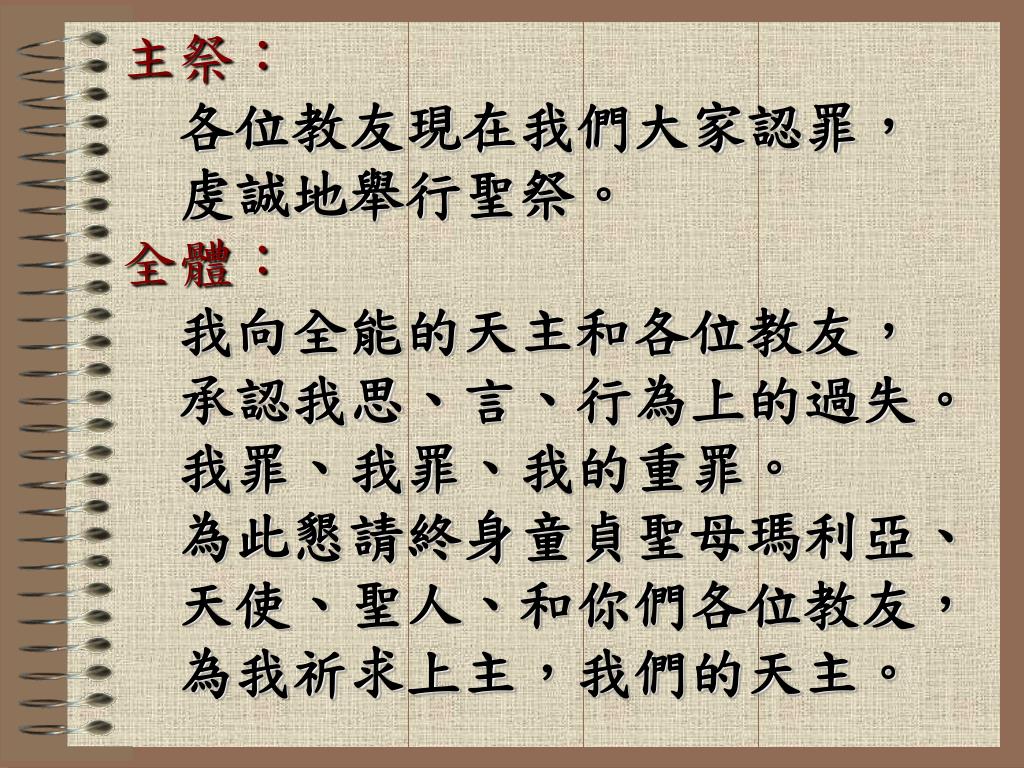 主祭：
各位教友現在我們大家認罪，
虔誠地舉行聖祭。
全體：
我向全能的天主和各位教友，
承認我思、言、行為上的過失。
我罪、我罪、我的重罪。
為此懇請終身童貞聖母瑪利亞、
天使、聖人、和你們各位教友，
為我祈求上主，我們的天主。